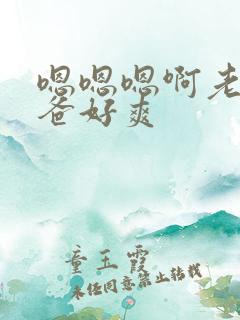 嗯嗯嗯啊老
爸好爽
童玉霞
未经同意禁止转载